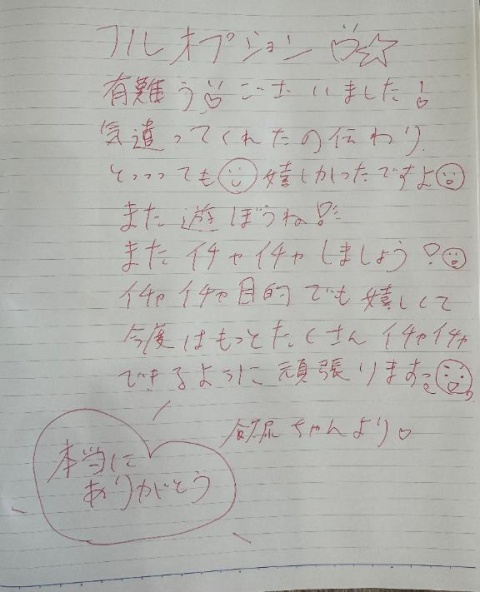 フルオプション♡☆
有難う♡ございました!
気遣ってくれたの伝わり
とっっっても嬉しかったですよ
また遊ぼうね!!
またイチャイチャしましょう?
イチャイチャ目的でも嬉しくて
今度はもっとたくさんイチャイチャ
できるように頑張りますっ
ちゃんより♡
本当に
ありがとう